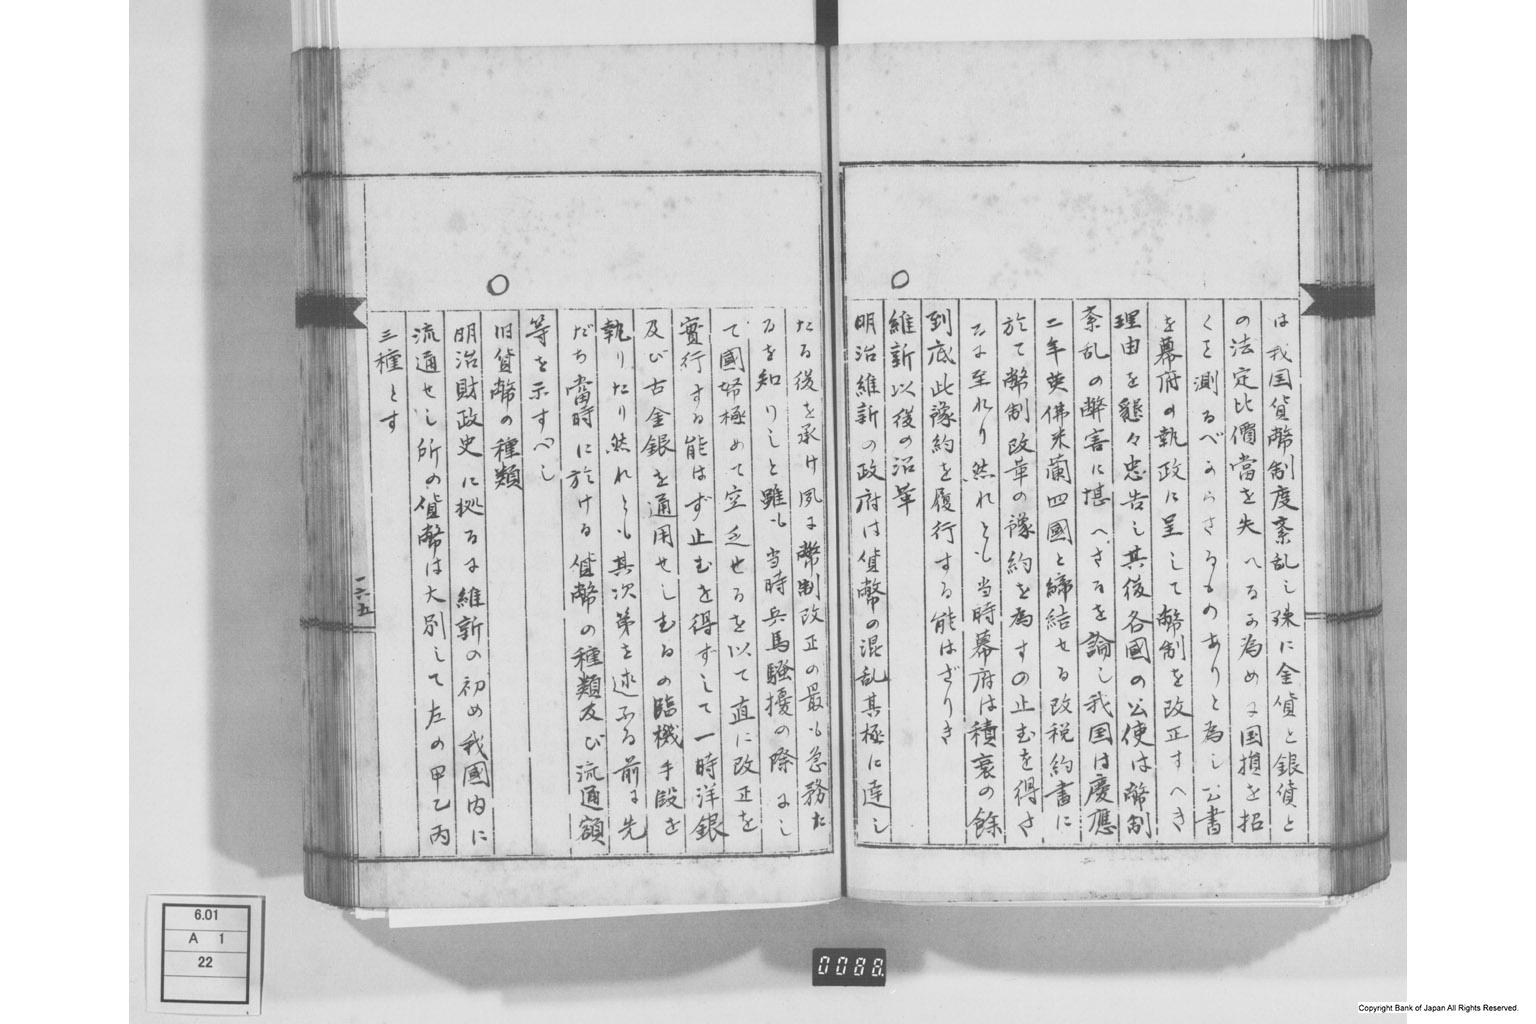 は我国貨幣制度紊乱し殊に金貨と銀貨と
の法定比價當を失へるか為めに国損を招
くを測るべからさるものありと為し公書
を幕府の執政に呈して幣制を改正すへき
理由を懇々忠告し其後各國の公使は幣制
紊乱の弊害に堪へざるを論し我国は慶應
二年英佛米蘭四國と締結せる改税約書に
於て幣制改革の豫約を為すの止むを得さ
るに至れり然れとも当時幕府は積衰の餘
到底此豫約を履行する能はざりき
○
維新以後の沿革
明治維新の政府は貨幣の混乱其極に達し
たる後を承け夙に幣制改正の最も急務た
るを知りしと雖も当時兵馬騒擾の際にし
て國帑極めて空乏せるを以て直に改正を
實行する能はず止むを得ずして一時洋銀
及び古金銀を通用せしむるの臨機手段を
執りたり然れとも其次第を述ふる前に先
だち當時に於ける貨幣の種類及び流通額
等を示すべし
○
旧貨幣の種類
明治財政史に拠るに維新の初め我國内に
流通せし所の貨幣は大別して左の甲乙丙
三種とす
一六五
6.01
A 1
22
0088
Copyright Bank of Japan All Rights Reserved.